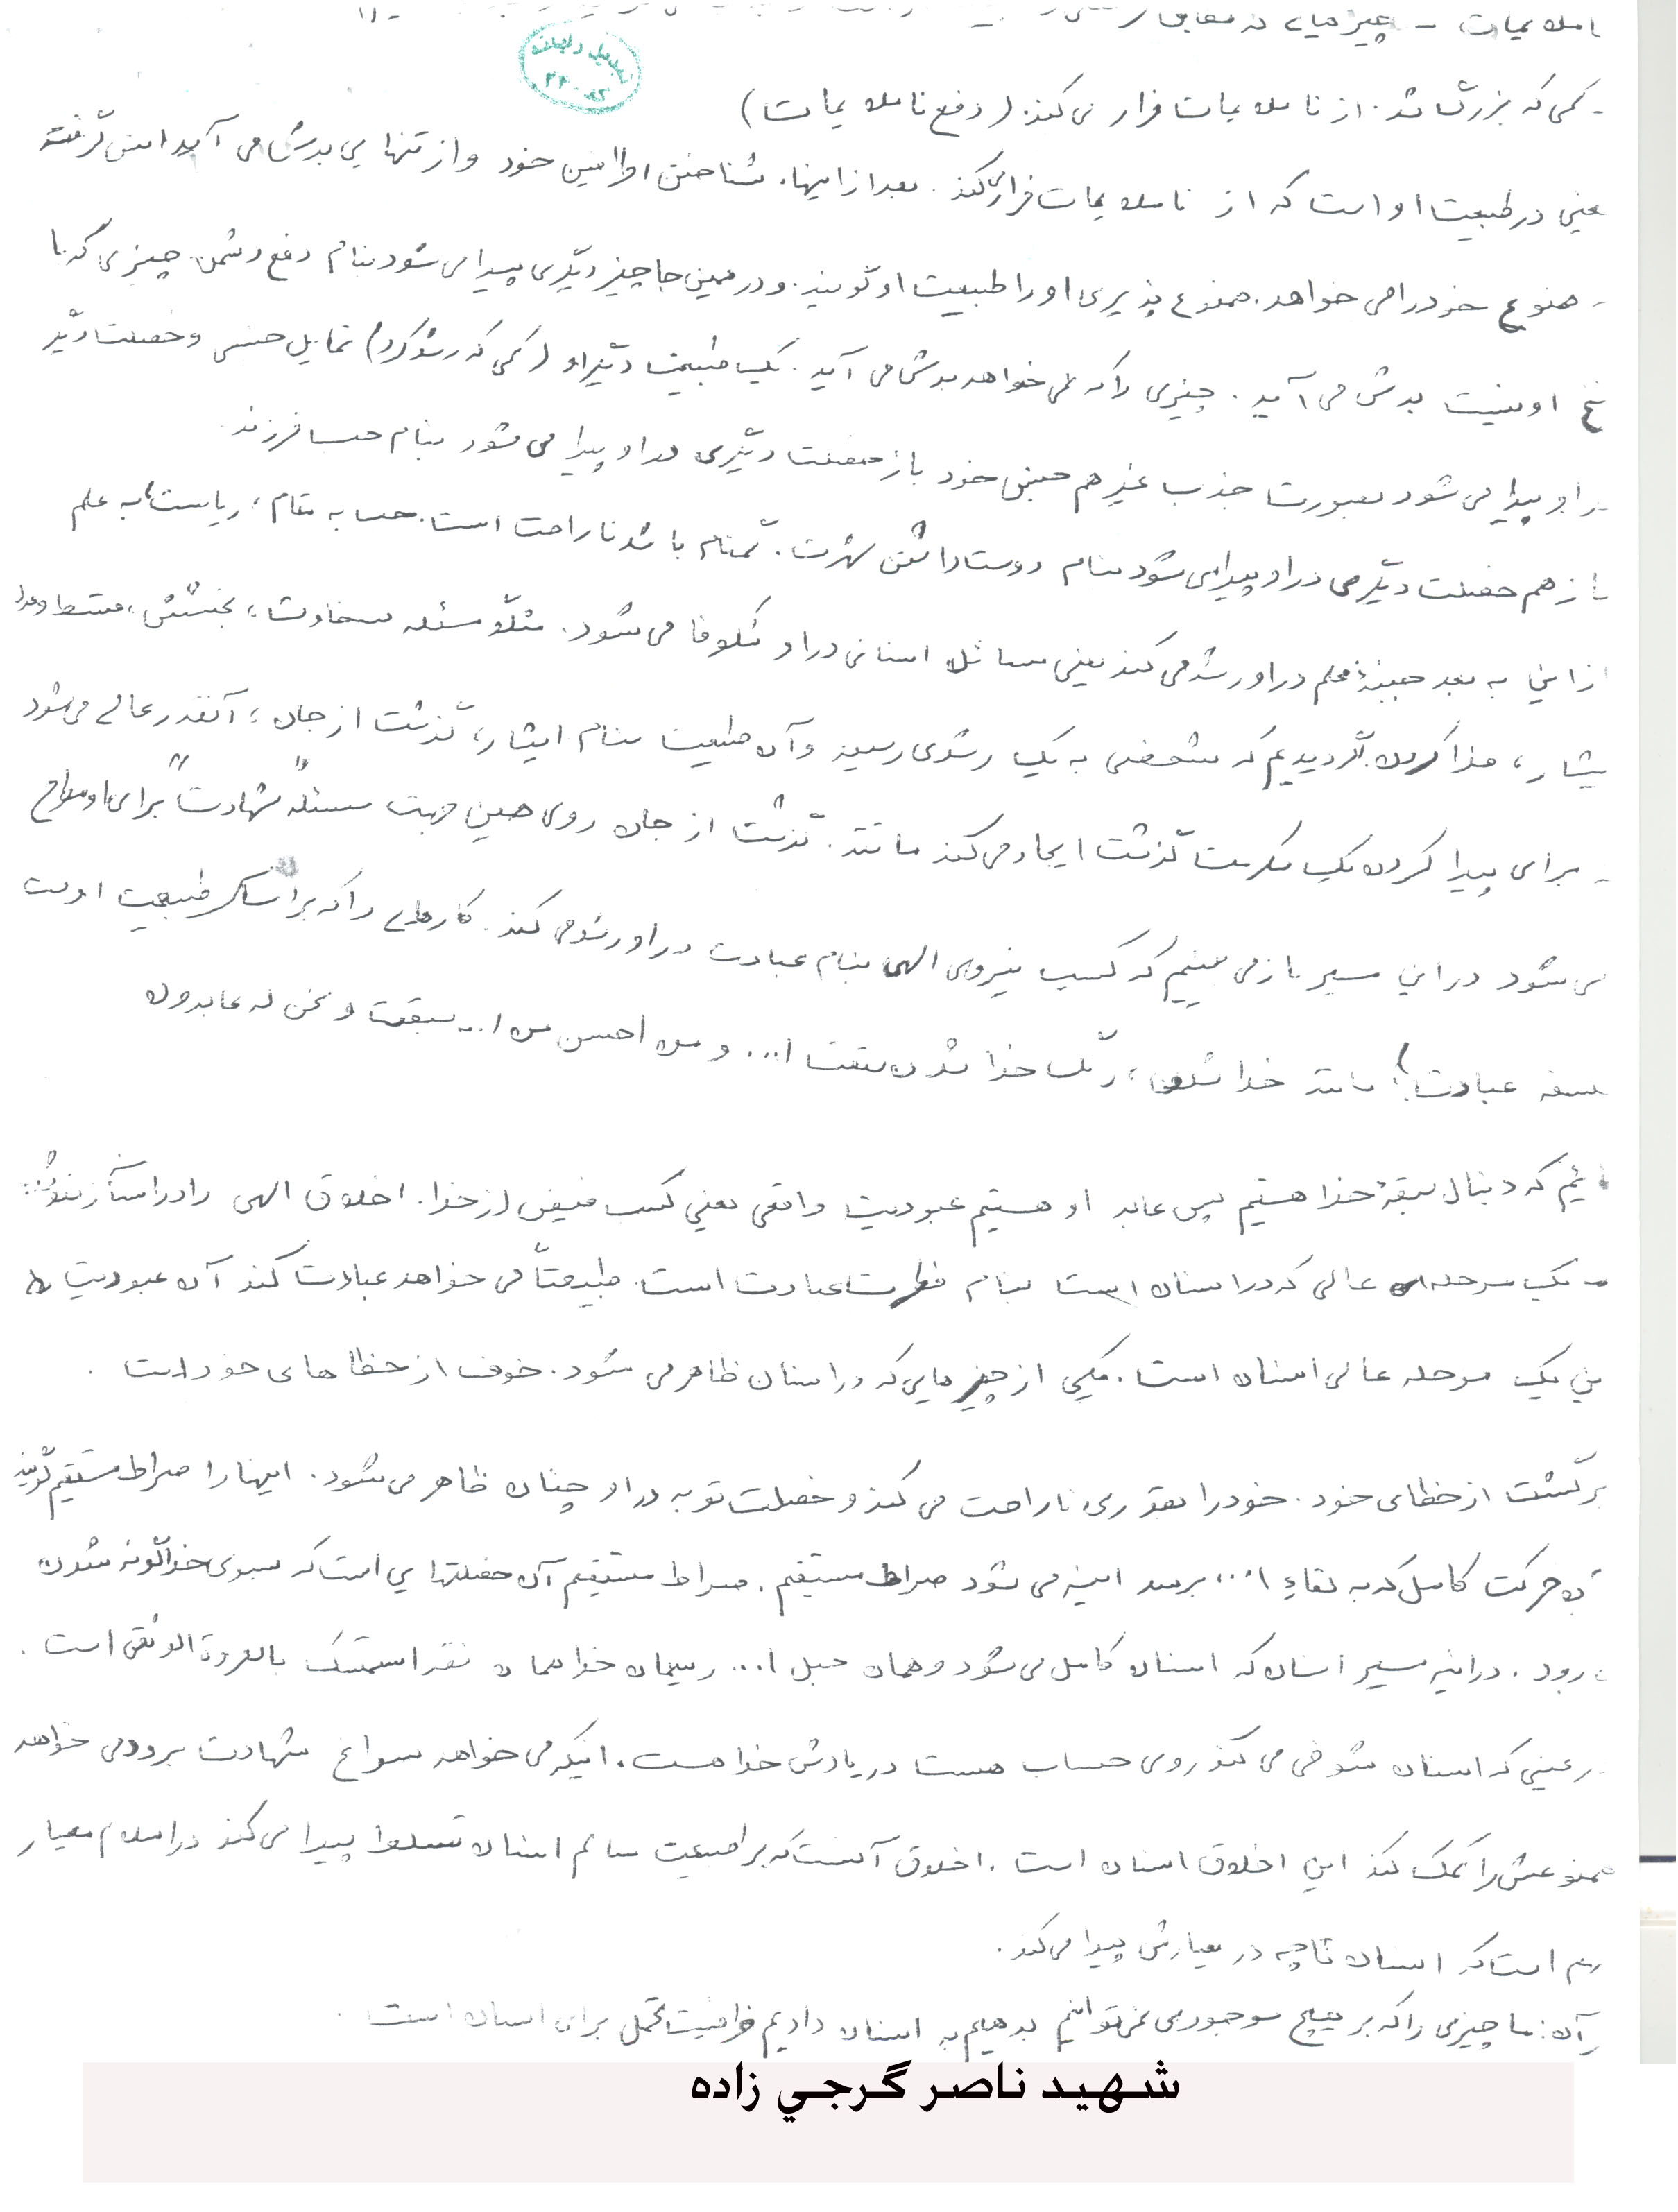 املایمات - چیزهایی که مقابل
تبدیل دلهات
۲۲۰۰۸۲
- کمی که بزرگ شد. از ناملایمات فرار می‌کند. (دفع ناملایمات)
یعنی در طبیعت او است که از ناملایمات فرار می‌کند. بعد از اینها. شناختن اطرافیین خود و از تنهایی بدش می آید انس گرفتن
- همنوع خود را می خواهد. همنوع پذیری او را طبیعت او گویند. و در همین جا چیز دیگری پیدا می شود بنام دفع دشمن. چیزی که با
او نیست بدش می آید. چیزی را که نمی خواهد بدش می آید. یک طبیعت دیگر او (کمی که رشد کرد) تمایل جنسی و خصلت دیگر
در او پیدا می شود بصورت جذب غیر هم جنس خود باز خصلت دیگری در او پیدا می شود بنام حب فرزند.
باز هم خصلت دیگری در او پیدا می شود بنام دوست داشتن شهرت. گمنام باشد ناراحت است. حب به مقام، ریاست، به علم
از این به بعد جنبهٔ معلم در او رشد می کند یعنی مسائل انسانی در او شکوفا می شود. مثلاً مسئله سخاوت، بخشش،
یثار، مذا کردن. اگر دیدیم که شخصی به یک رشدی رسید و آن طبیعت بنام ایثار، گذشت از جان، آنقدر عالی می شود
- برای پیدا کردن یک مکرمت گذشت ایجاد می کند مانند. گذشت از جان روی همین جهت مسئله "شهادت" برای او مطرح
می شود در این سیر باز می بینیم که کسب نیروی الهی بنام عبادت در او رشد می کند. کارهایی را که بر اساس طبیعت اوست
لسفه عبادت؟ مانند خدا شدن، رنگ خدا شدن صبغت ا... و من احسن من ا... صبغت و نحن له عابدون
ئیم که دنبال صبغهٔ خدا هستیم پس عابد او هستیم عبودیت واقعی یعنی کسب فیض از خدا. اخلاق الهی را در
- یک مرحله‌ای عالی که در انسان است بنام فطرت عبادت است. طبیعتاً می خواهد عبادت کند آن عبودیت را
ین یک مرحله عالی انسان است. یکی از چیزهایی که در انسان ظاهر می شود. خوف از خطاهای خود است.
برگشت از خطای خود. خود را بقدری ناراحت می کند و خصلت توبه در او چنان ظاهر می شود. اینها را صراط مستقیم گویند
آن حرکت کامل که به لقاء ا... برسد این می شود صراط مستقیم. صراط مستقیم آن خصلتهایی است که بسوی خداگونه شدن
رود. در این مسیر انسان که انسان کامل می شود و همان حبل ا... ریسمان خدا همان فقد استمسک بالعروة الوثقی است.
رعینی که انسان شوخی می کند روی حساب هست در یادش خدا هست. اینکه می خواهد سراغ شهادت برود می خواهد
همنوعش را کمک کند این اخلاق انسان است. اخلاق آنست که بر طبیعت سالم انسان تسلط پیدا می کند در اسلام معیار
است که انسان تا چه در معیارش پیدا می کند.
آن: ما چیزی را که بر هیچ موجودی نمی توانیم بدهیم به انسان دادیم ظرفیت تحمل برای انسان است.
شهید ناصر گرجي زاده